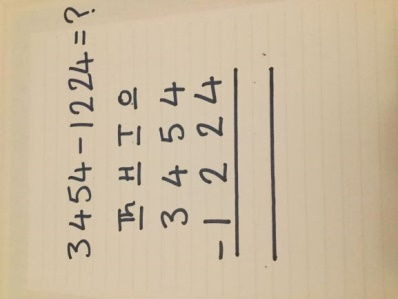 3454-1224=?
Th H T O
3 4 5 4
-1 2 2 4